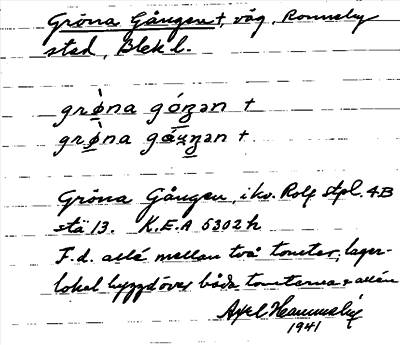 Gröna Gången †, väg, Ronneby
stad, Blek l.
grö̀na góŋən †
grö̀na gáŋən †
Gröna Gången, i kv. Rolf stpl. 4B
stä 13. K.E.A 5302 h
F.d. allé mellan två tomter, lager-
lokal byggd över båda tomterna & allén
Axel
1941